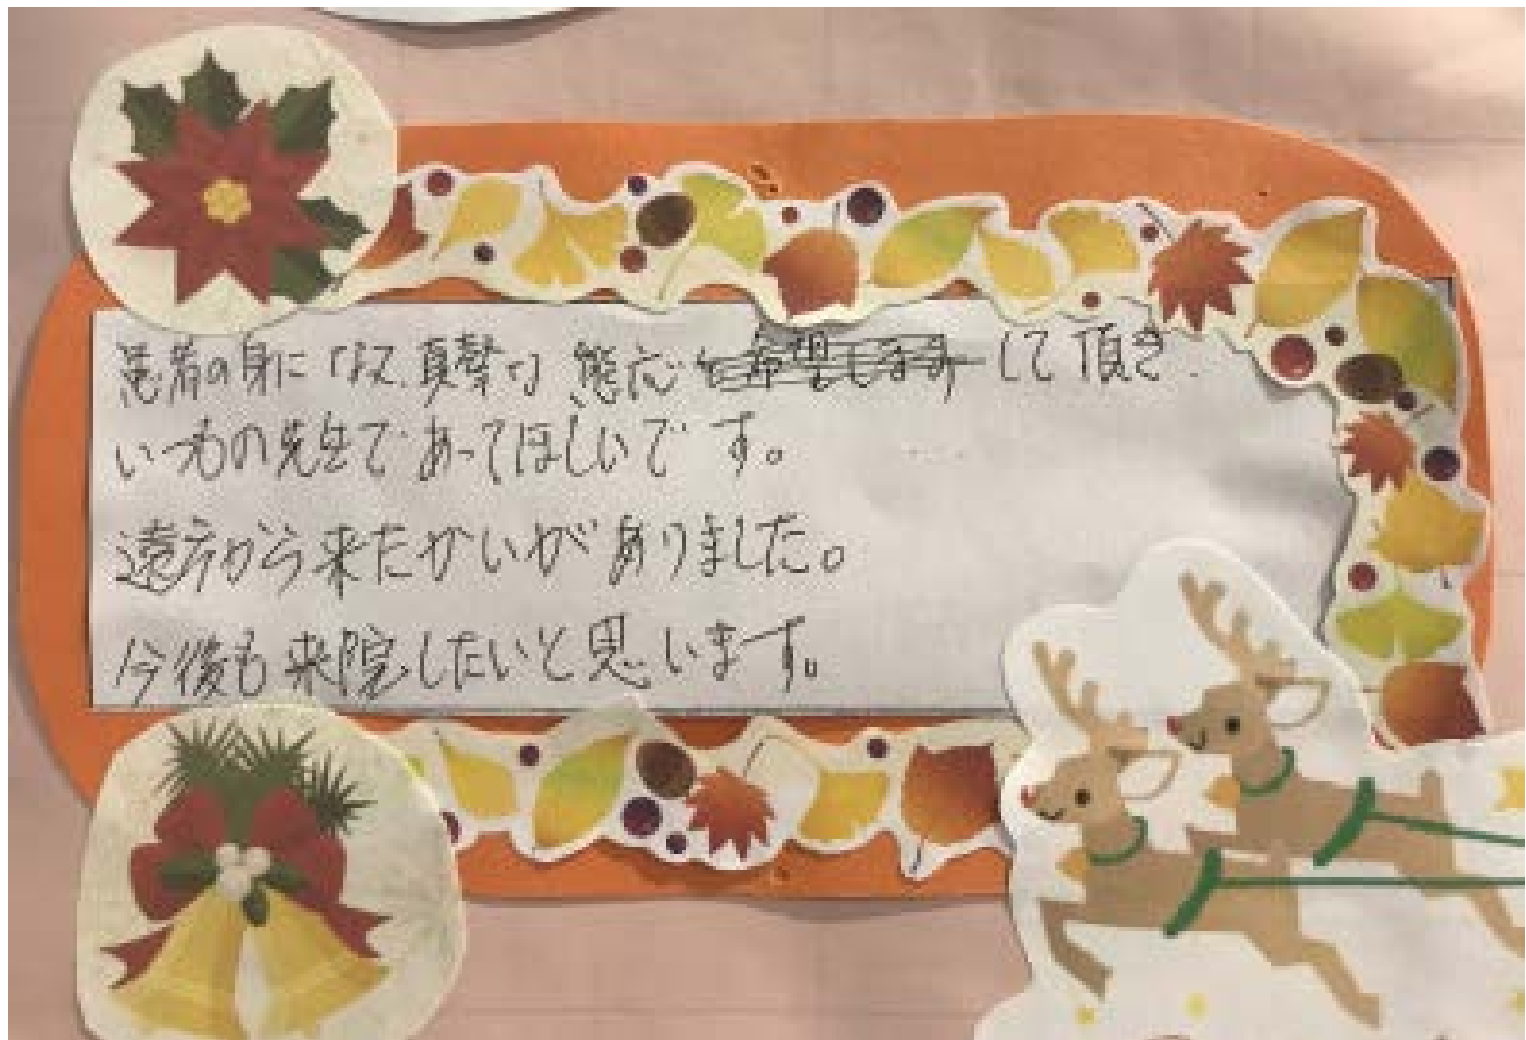 患者の身になって、真摯な態応を希望しますして頂き
いつもの先生であってほしいです。
遠方から来たかいがありました。
今後も来院したいと思います。